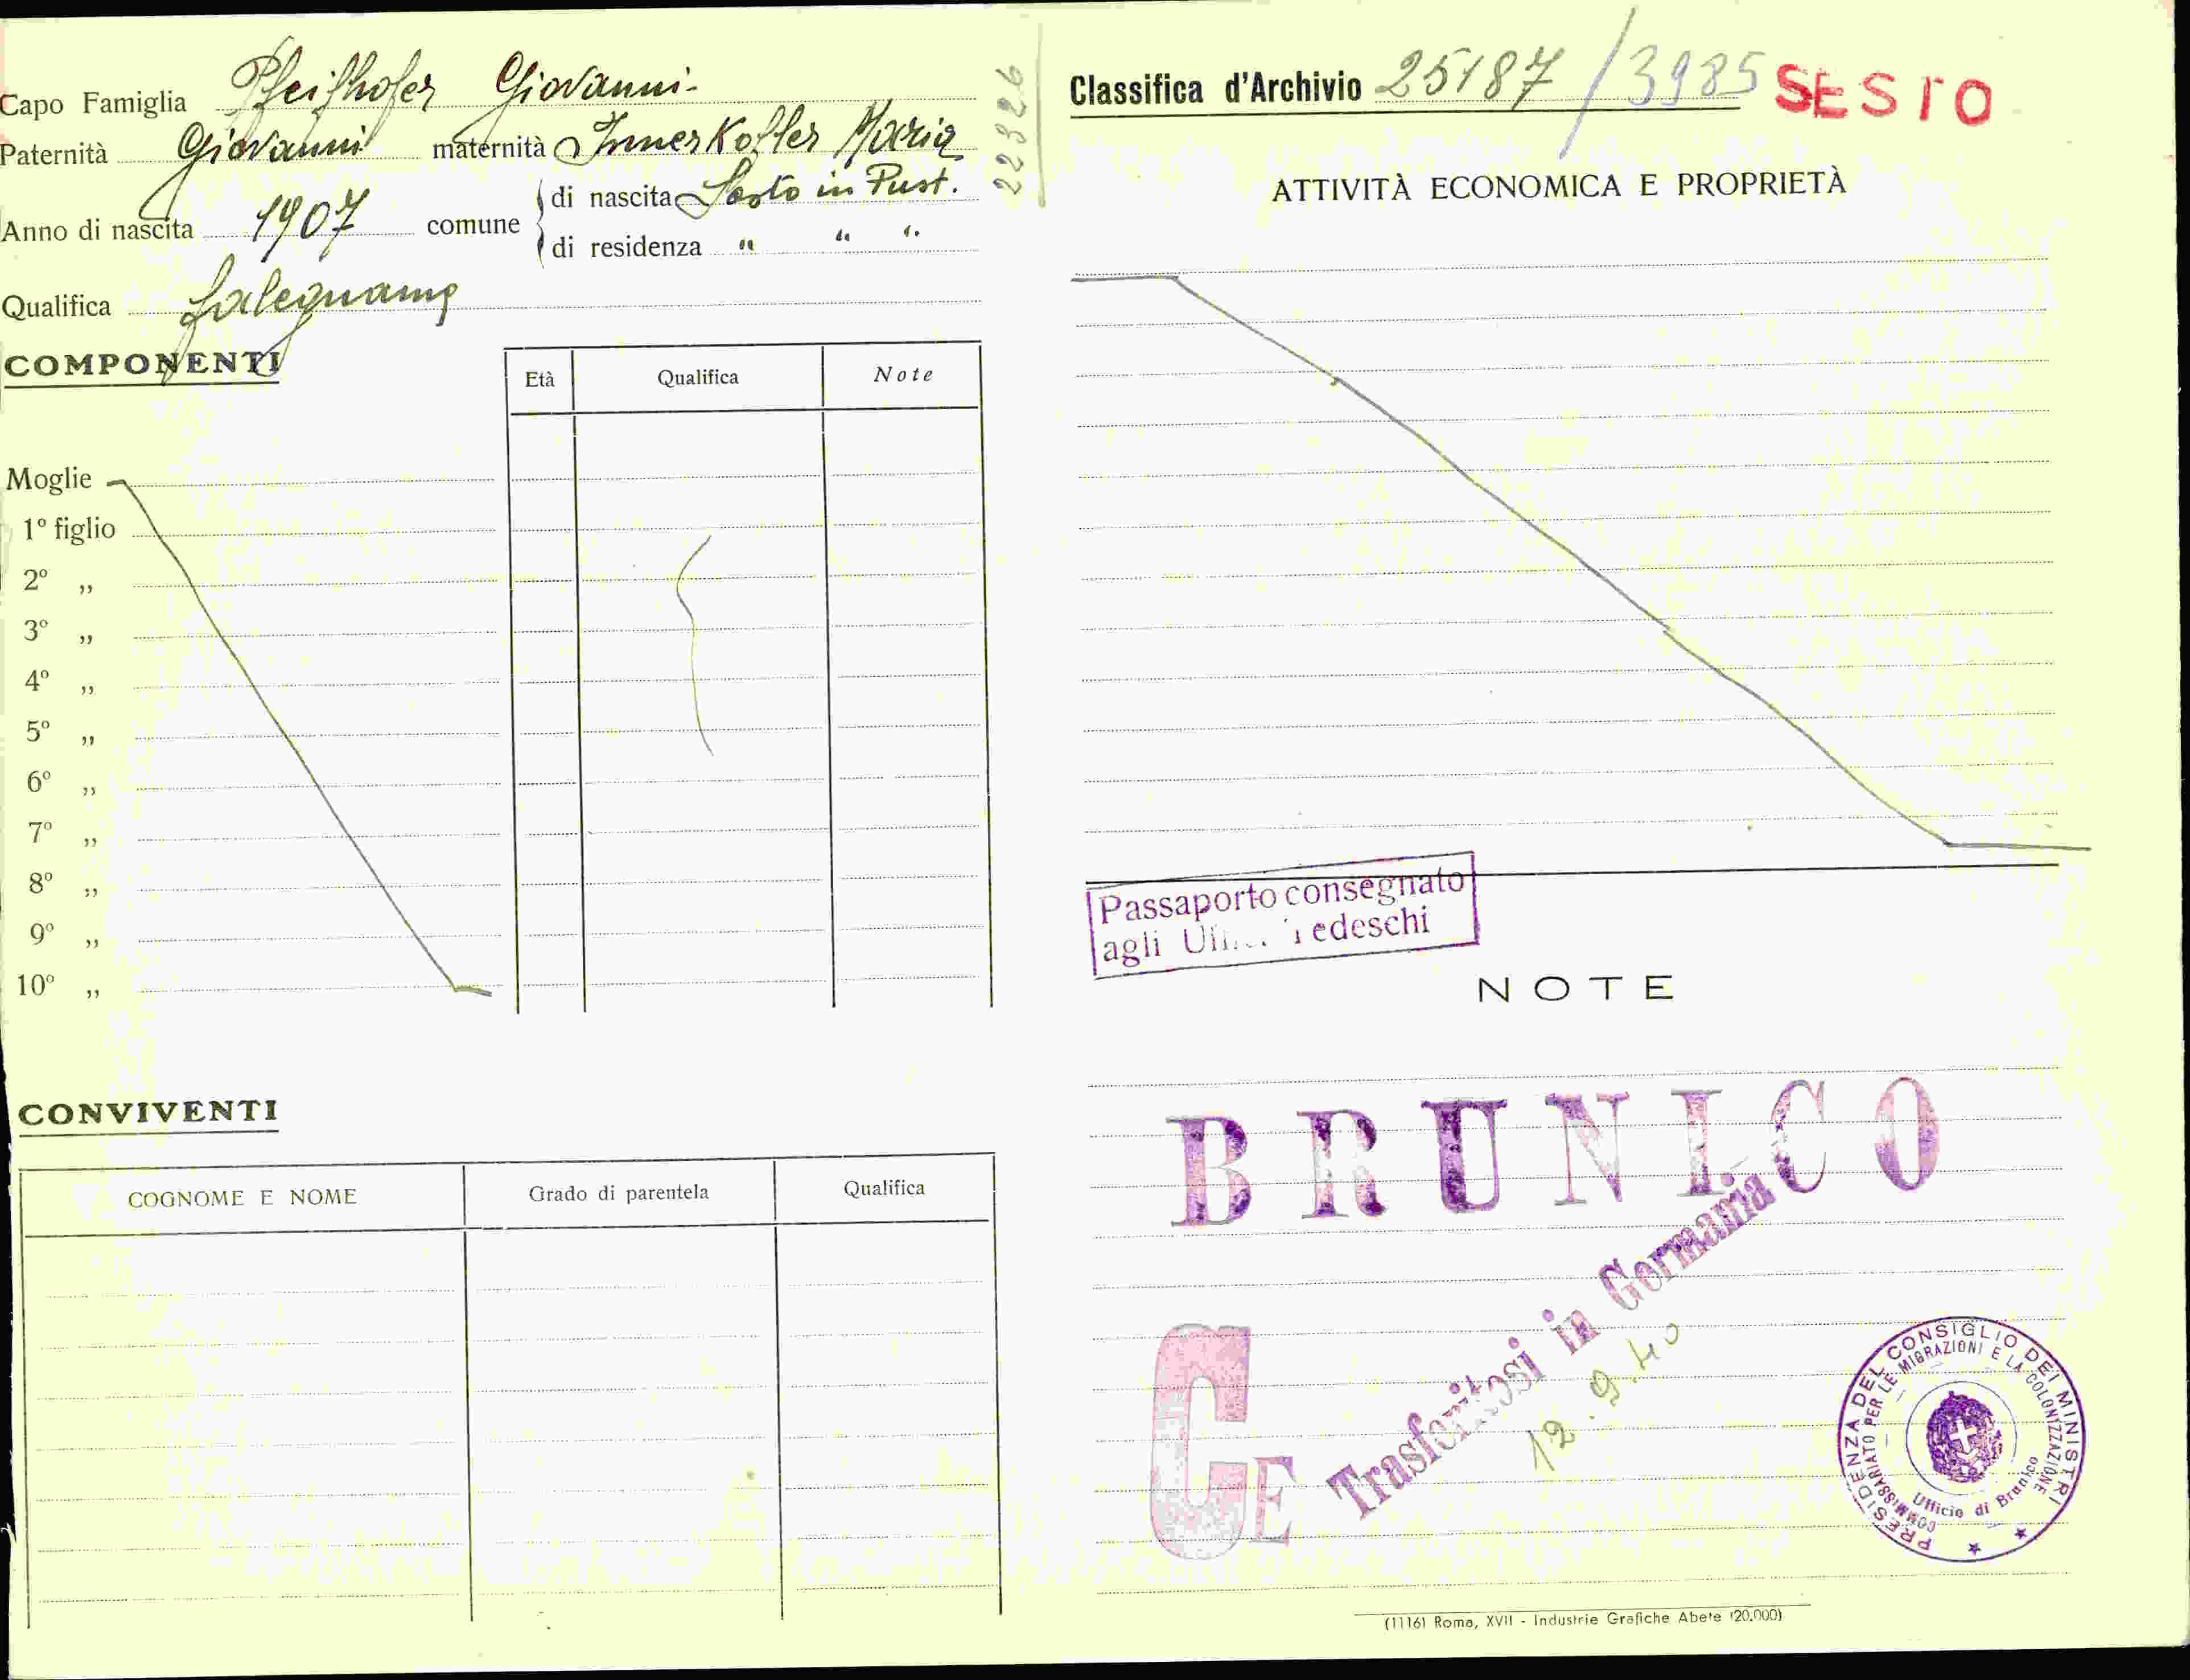 Capo Famiglia Pfeifhofer Giovanni-
Paternità Giovanni maternità Innerkofler Maria
Anno di nascita 1907 comune
di nascita Sesto in Pust.
di residenza " " "
Qualifica falegname
22326
COMPONENTI
Età Qualifica Note
Moglie
1º figlio
2º „
3º „
4º „
5º „
6º „
7º „
8º „
9º „
10º „
CONVIVENTI
COGNOME E NOME Grado di parentela Qualifica
Classifica d'Archivio 25187/3985 SESTO
ATTIVITÀ ECONOMICA E PROPRIETÀ
Passaporto consegnato
agli Tedeschi
NOTE
BRUNICO
GE
Trasferitosi in Germania
12.9.40
PRESIDENZA DEL CONSIGLIO DEI MINISTRI
COMMISSARIATO PER LE MIGRAZIONI E LA COLONIZZAZIONE
Ufficio di Brunico
(1116) Roma, XVII - Industrie Grafiche Abete (20.000)